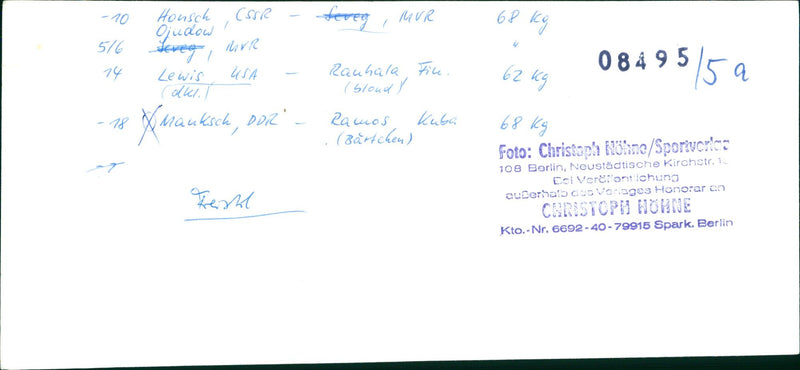 -10 Honsch, CSSR - Seveg, MVR 68 Kg
Ojudow
5/6 Seveg, MVR "
14 Lewis, USA - Rauhala, Fin. 62 Kg
(dkl.) (blond)
-18 Manksch, DDR - Ramos Kuba 68 Kg
(Bärtchen)
Freistil
08495/5a
Foto: Christoph Höhne/Sportverlag
108 Berlin, Neustädtische Kirchstr.
Bei Veröffentlichung
außerhalb des Verlages Honorar an
CHRISTOPH HÖHNE
Kto.-Nr. 6692-40-79915 Spark. Berlin